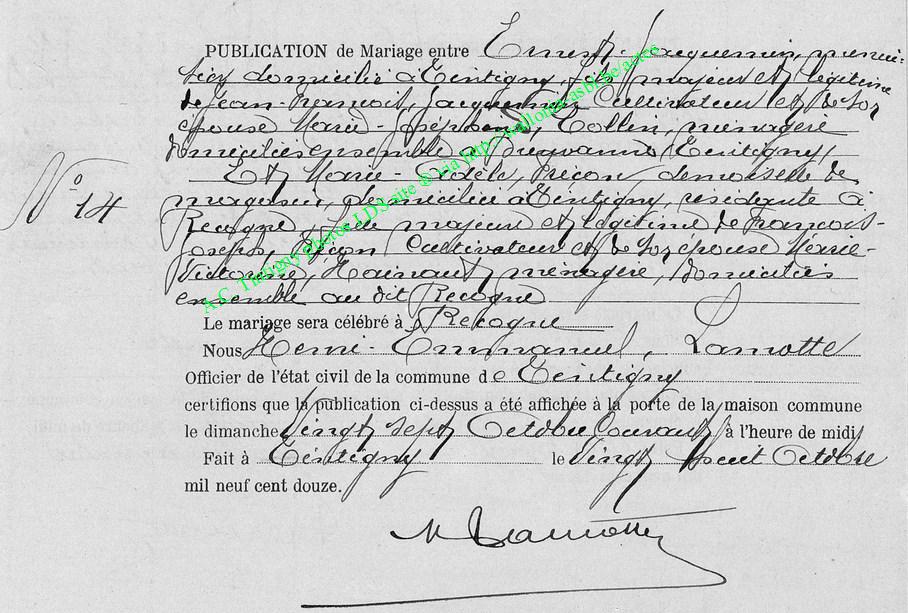 PUBLICATION de Mariage entre Ernest Jacquemin, menui-
sier domicilié à Tintigny, fils majeur et légitime
de Jean-François, Jacquemin, Cultivateur et de son
épouse Marie-Joséphine, Collin, ménagère
domiciliés ensemble à (Tintigny)
Et Marie-Adèle, demoiselle de
magasin, domiciliée à Tintigny, résidante à
Recogne, fille majeure et légitime de François-
Joseph, Cultivateur et de son épouse Marie-
Victorine, Hainaut, ménagère, domiciliés
ensemble au dit Recogne
N° 14
Le mariage sera célébré à Recogne
Nous Henri-Emmanuel, Lamotte
Officier de l'état civil de la commune de Tintigny
certifions que la publication ci-dessus a été affichée à la porte de la maison commune
le dimanche Vingt sept Octobre Courant à l'heure de midi
Fait à Tintigny le Vingt huit Octobre
mil neuf cent douze.
Lamotte
A.C. Tintigny photos LDS site @ via http://wallonia-asbl.be/actes